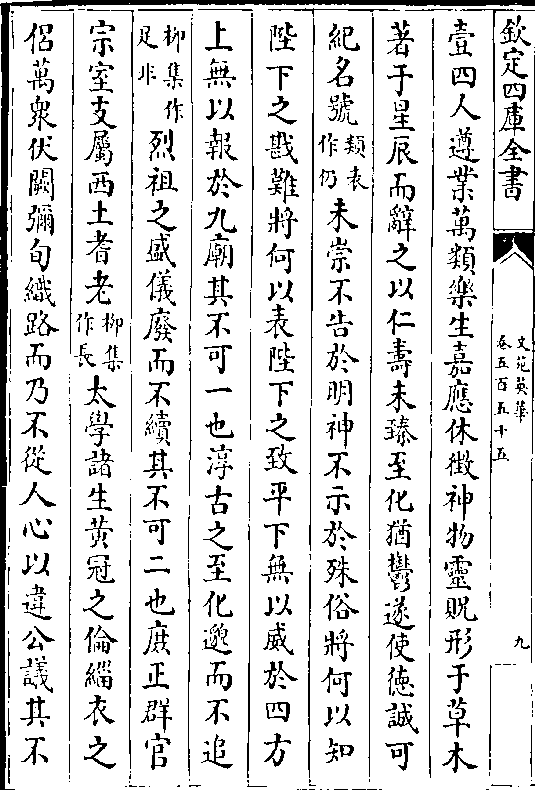 欽定四庫全書
文苑英華
卷五百五十五
九
壹四人遵業萬類樂生嘉應休徵神物靈貺形于草木
著于星辰而辭之以仁壽未臻至化猶鬱遂使德誠可
紀名號類表作仍未崇不告於明神不示於殊俗將何以知
陛下之戡難將何以表陛下之致平下無以威於四方
上無以報於九廟其不可一也淳古之至化邈而不追
柳集作足非烈祖之盛儀廢而不續其不可二也庶正群官
宗室支屬西土耆老柳集作長太學諸生黄冠之倫緇衣之
侣萬衆伏闕彌旬織路而乃不從人心以違公議其不